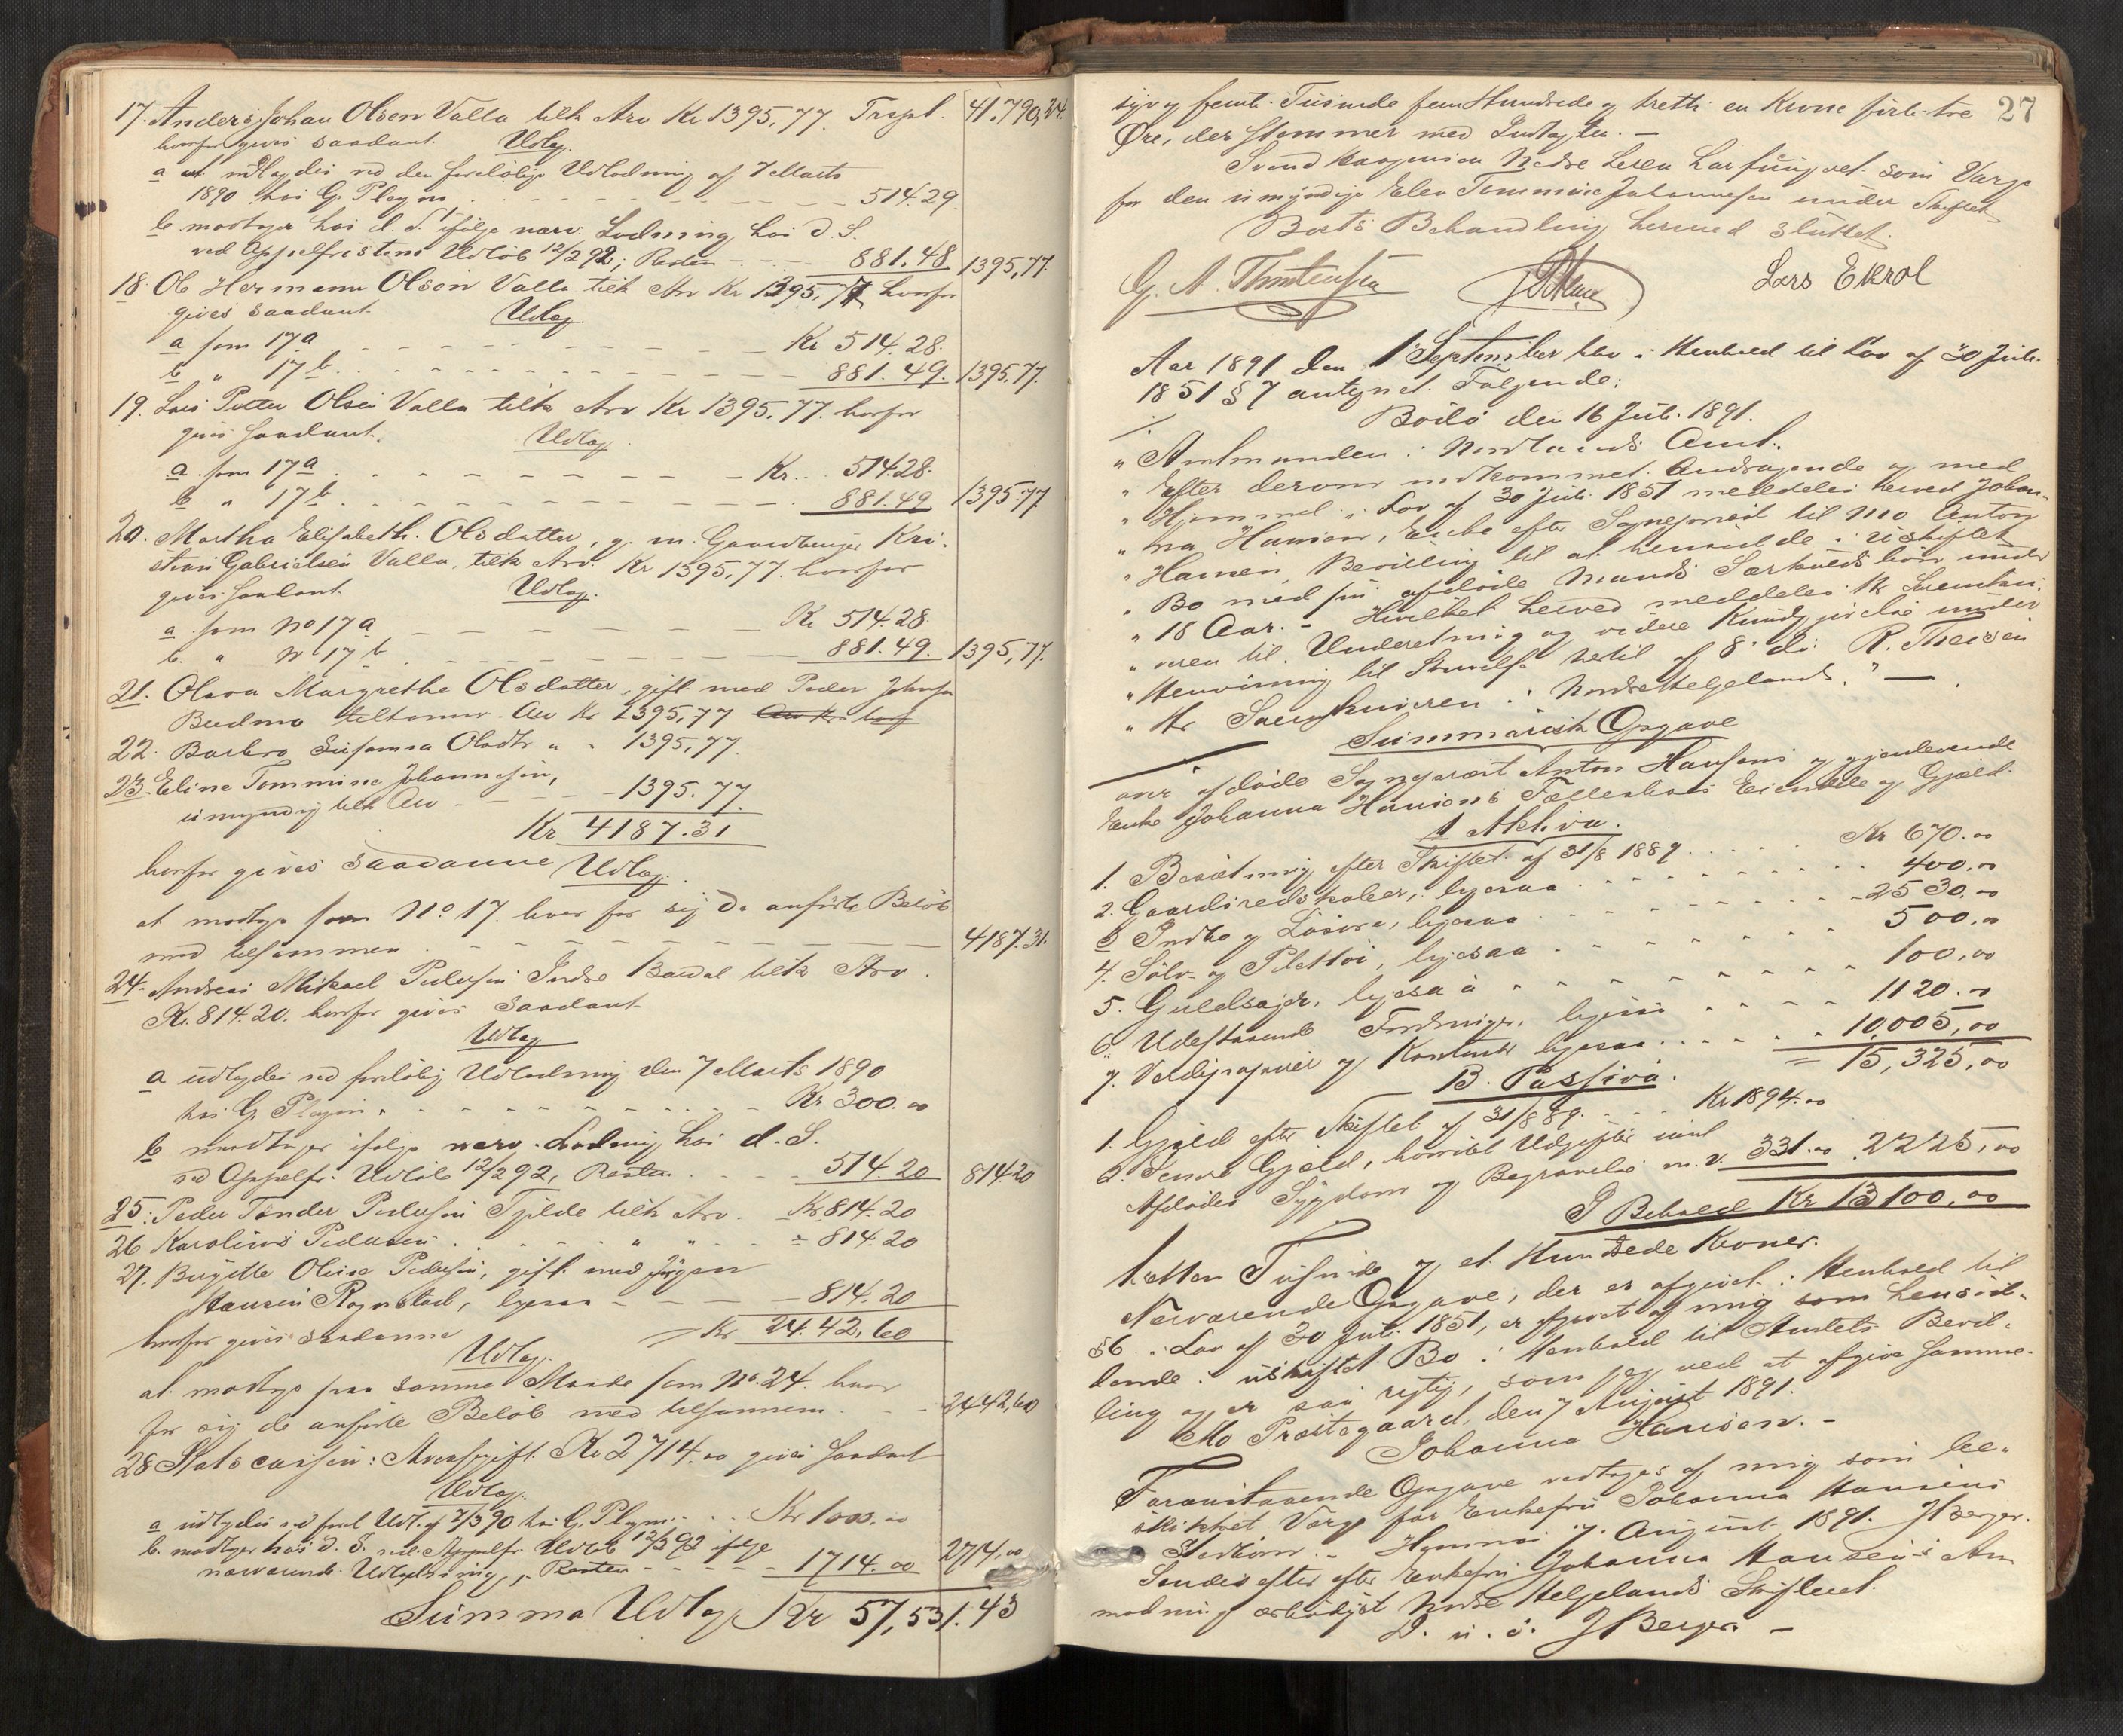 17. Anders Johan Olsen Valla tilk Arv Kr 1395,77. Trspt. 41.790,24.
hvorfor gives saadant. Udlæg.
a at udlagdes ved den foreløbige Udlodning af 7 Marts
1890 hos G. Playm 514.29.
b. modtager hos d. S. ifølge nærv. Lodning, hos d. S.
ved Appelfristens Udløb 12/2 92, Resten 881.48 1395,77.
18. Ole Hermann Olsen Valla tilk Arv Kr 1395,77 hvorfor
gives saadant. Udlæg.
a som 17a Kr 514.28.
b " 17b. 881.49. 1395.77.
19. Lars Petter Olsen Valla tilk Arv Kr 1395.77. hvorfor
gives saadant. Udlæg.
a. som 17a Kr. 514.28.
b " 17b. 881.49 1395.77
20. Martha Elisabeth. Olsdatter, g. m. Gaardbruger Kri-
stian Gabrielsen Valla, tilk Arv. Kr 1395,77. hvorfor
gives saadant. Udlæg.
a. som No 17a Kr 514.28.
b. " No 17b 881.49. 1395,77.
21. Olava Margrethe Olsdatter, gift med Peder Johnsen
Budmo tilkommer Arv Kr 1395,77
22. Barbro Susanna Olsdtr " " 1395,77.
23. Eline Tommine Johannesen,
umyndig tilk Arv 1395.77.
Kr 4187.31
hvorfor gives saadanne Udlæg.
at modtage som No 17. hver for sig de anførte Beløb
med tilsammen 4187.31.
24. Andreas Mikael Pedersen Indre Bardal tilk Arv.
Kr. 814.20. hvorfor gives saadant
Udlæg
a udlagdes ved foreløbig Udlodning den 7 Marts 1890
hos G. Playm Kr 300.00
b modtager ifølge nærv. Lodning hos d. S.
ved Appelfr. Udløb 12/2 92, Resten 514.20 814.20
25. Peder Tønder Pedersen Tjilde tilk Arv. Kr 814.20
26 Karolius Pedersen " " 814.20
27. Birgitte Olise Pedersen, gift med Jørgen
Hansen Rognstad, ligesaa 814.20
hvorfor gives saadanne Kr 24.42,60
Udlæg.
at modtage paa samme Maade som No. 24. hver
for sig de anførte Beløb med tilsammen 2442,60
28 Statscassen: Arveafgift Kr 2714.00 gives saadant
Udlæg.
a udlagdes ved forel Udl. af 7/3 90 hos G. Playm Kr 1000.00
b. modtager hos d. S. ved Appelfr. Udløb 12/2 92 ifølge
nærværende Udlodning, Resten 1714.00 2714,00
Summa Udlæg Kr 57,531.43
27
syv og femti Tusinde fem Hundrede og tretti en Krone firti tre
Øre, der stemmer med Indtægten. —
Svend Kaagensen Nedre Leren har fungeret som Værge
for den umyndige Elen Tommine Johannesen under Skiftet
Boets Behandling hermed sluttet.
G. A. Thortensen Lars Ekrol
Aar 1891 den 1 September blev i Henhold til Lov af 30 Juli
1851 § 7 antegnet Følgende:
Bodø den 16 Juli 1891.
" Amtmanden i Nordlands Amt.
" Efter derom indkommet Andragende og med
" Hjemmel i Lov af 30 Juli 1851 meddeles herved Johan-
" na Hansen, Enke efter Sogneprest til Mo Anton
" Hansen, Bevilling til at hensidde i uskiftet
" Bo med sin afdøde Mands Særkuldsbørn under
" 18 Aar. - Hvilket herved meddeles Hr Sorenskri-
" veren til Underretning og videre Kundgjørelse under
" Henvisning til Skrivelse hertil af 8 ds. R. Theisen
" Hr Sorenskriveren i Nordre Helgeland. " —
Summarisk Opgave
over afdøde Sogneprest Anton Hansens og gjenlevende
Enke Johanna Hansens Fællesbos Eiendele og Gjæld.
A Aktiva.
1. Besætning efter Skiftet af 31/8 1889 Kr 670.00
2. Gaardsredskaber, ligesaa 400,00
3 Indbo og Løsøre, ligesaa 2530.00
4. Sølv og Pletttøi, ligesaa 500,00
5. Guldsager, ligesaa 100,00
6 Udestaaende Fordringer, ligesaa 1120.00
7. Værdipapirer og Kontanter ligesaa 10,005,00
= 15,325,00
B. Passiva.
1. Gjæld efter Skiftet af 31/8 89. Kr 1894.00
2. Senere Gjæld, hvoriblt Udgifter ved
Afdødes Sygdom og Begravelse m. v. 331.00 2225,00
I Behold Kr 13100,00
tretten Tusinde og et Hundrede Kroner.
Nærværende Opgave, der er afgivet i Henhold til
§ 6 i Lov af 30 Juli 1851, er afgivet af mig som hensid-
dende i uskiftet Bo i Henhold til Amtets Bevil-
ling og er saa rigtig, som jeg ved at afgive samme.
Mo Præstegaard, den 7 August 1891.
Johanna Hansen. -
Foranstaaende Opgave vedtages af mig som be-
skikket Værge for Enkefru Johanna Hansens
Stedbørn. - Hemnes 7. August 1891. J Berger.
Sendes efter Enkefru Johanna Hansens An-
modning ærbødigst Nordre Helgelands Skifteret.
D. u. s. J Berger. —